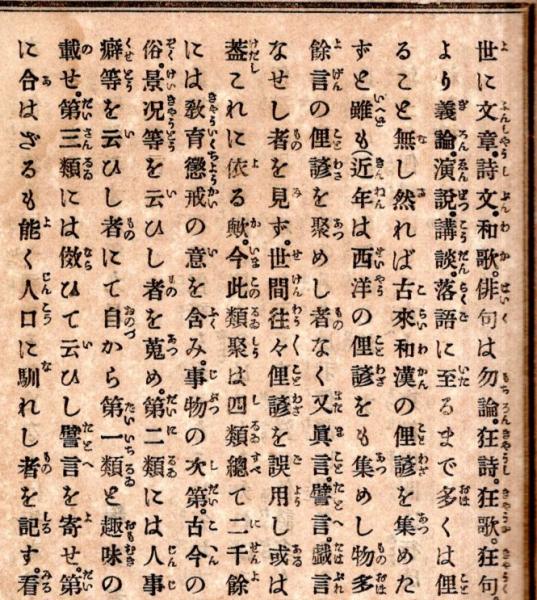 世に文章。詩文。和歌。俳句は勿論。狂詩。狂歌。狂句。
より義論。演説。講談。落語に至るまで多くは俚
ること無し然れば古來和漢の俚諺を集めた
ずと雖も近年は西洋の俚諺をも集めし物多
餘言の俚諺を聚めし者なく又眞言。譬言。戯言
なせし者を見ず。世間往々俚諺を誤用し或は
葢これに依る歟。今此類聚は四類總て二千餘
には敎育懲戒の意を含み。事物の次第。古今の
俗。景况等を云ひし者を蒐め。第二類には人事
癖等を云ひし者にて自から第一類と趣味の
載せ。第三類には傚ひて云ひし譬言を寄せ。第
に合はざるも能く人口に馴れし者を記す。看